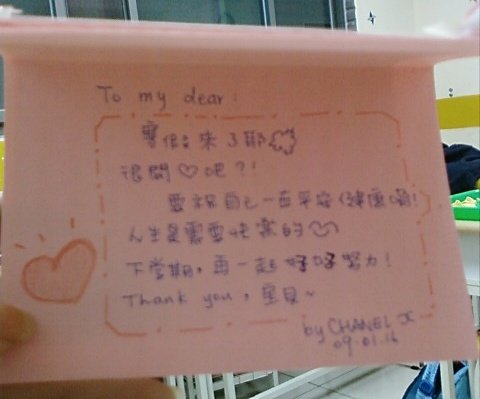 To my dear:
寒假來了耶
很開♡吧?!
要祝自己一直平安健康唷!
人生是需要快樂的
下學期,再一起好好努力!
Thank you,寶貝~
by CHANEL
09.01.16